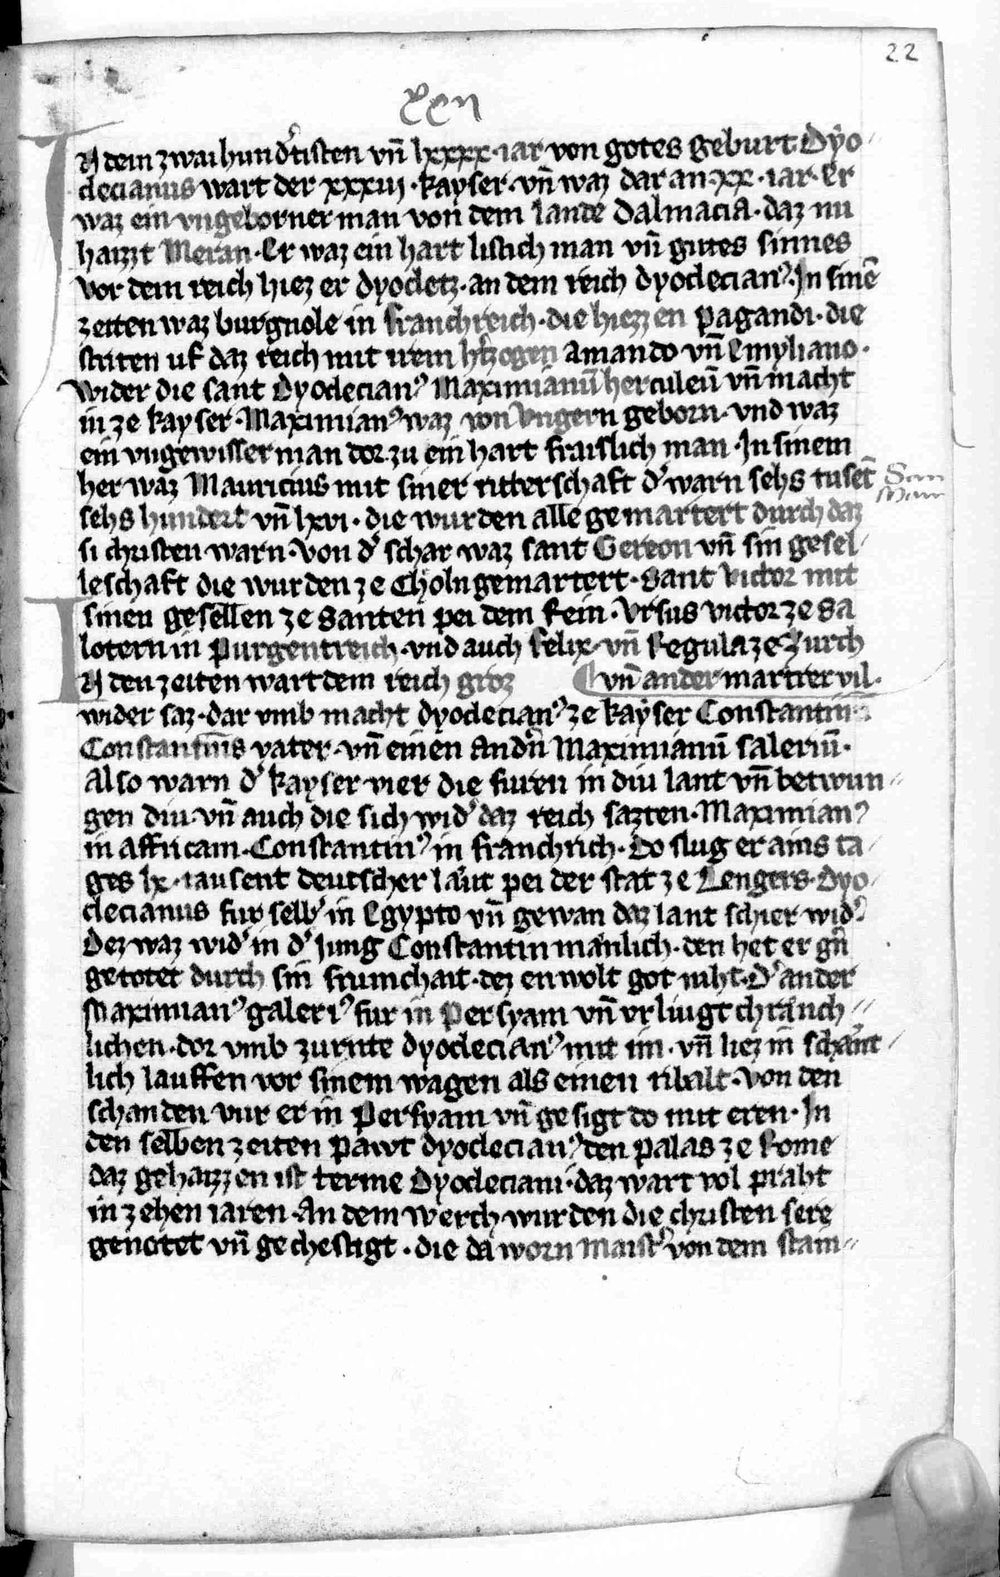 22
xxii
IN dem zwaihundͤtisten vn̄ lxxxx · iar von gotes geburt Dyo⸗
clecianus wart der xxxiij · kayser · vn̄ waz dar an xx · iar · Er
waz ein vngeborner man von dem lande Dalmacia · daz nu
haizzt Meran · Er waz ein hart listich man vn̄ gutes sinnes
vor dem reich hiez er dyocletz · an dem reich dyoclecian⁹ · In sinē
zeiten waz burgnole in franchreich · die hiezzen pagandi · die
striten uf daz reich mit irem h͛tzogen amando vn̄ Emyliano ·
wider die sant Dyoclecian⁹ Maximianū herculeū vn̄ macht
in ze kayser · Maximian⁹ waz von Vngern geborn · vnd waz
ein vngewisser man dor zu ein hart fraislich man · In sinem
her waz Mauricius mit siner ritterschaft d͛ warn sehs tusēt
sehs hundert vn̄ lxvi · die wurden alle gemartert durch daz
si christen warn · Von d͛ schar waz sant Gereon vn̄ sin gesel⸗
leschaft die wurden ze Choln gemartert · Sant Victor mit
sinen gesellen ze Santen pei dem Rein · Vrsus victor ze Sa
lotern in Purgentreich · vnd auch Felix · vn̄ Regula ze Zurch
IN den zeiten wart dem reich groz vn̄ ander martrer vil ·
wider saz · dar vmb macht dyoclecian⁹ ze kayser Constantinū
Constantinīs vater · vn̄ einen andn̄ Maximianū Galeriū ·
also warn d͛ kayser vier die furen in diu lant vn̄ betwun⸗
gen diu · vn̄ auch die sich wid͛ daz reich sazten · Maximian⁹
in affricam · Constantin⁹ in franchrich · Do slug er ains ta⸗
ges lx · tausent deutscher laut pei der stat ze Lengers · Dyo⸗
clecianus fur selb͛ in Egypto vn̄ gewan daz lant schier wid͛
Dez waz wid͛ in d͛ Jung Constantin manlich · den het er gn̄
getotet durch sin frumchait · dez enwolt got niht · D͛ ander
Maximian⁹ galeri⁹ fur in Persyam vn̄ vrliugt chranch⸗
lichen · dor vmb zurnte dyoclecian⁹ mit im · vn̄ liez in schant⸗
lich lauffen vor sinem wagen als einen ribalt · von den
schanden vur er in Persyam vn̄ gesigt do mit eren · In
den selben zeiten pawt dyoclecian⁹ den palas ze Rome
daz gehaizzen ist terme Dyocleciani · daz wart vol praht
in zehen iaren · An dem werch wurden die christen sere
genotet vn̄ gechestigt · die da worn Maist͛ von dem stam⸗